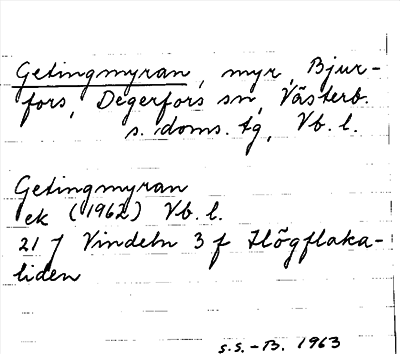 Getingmyran, myr, Bjur-
fors, Degerfors sn, Västerb.
s. doms. tg, Vb. l.
Getingmyran
ek (1962) Vb. l.
21 J Vindeln 3 f Högflaka-
liden
S.S.-B. 1963